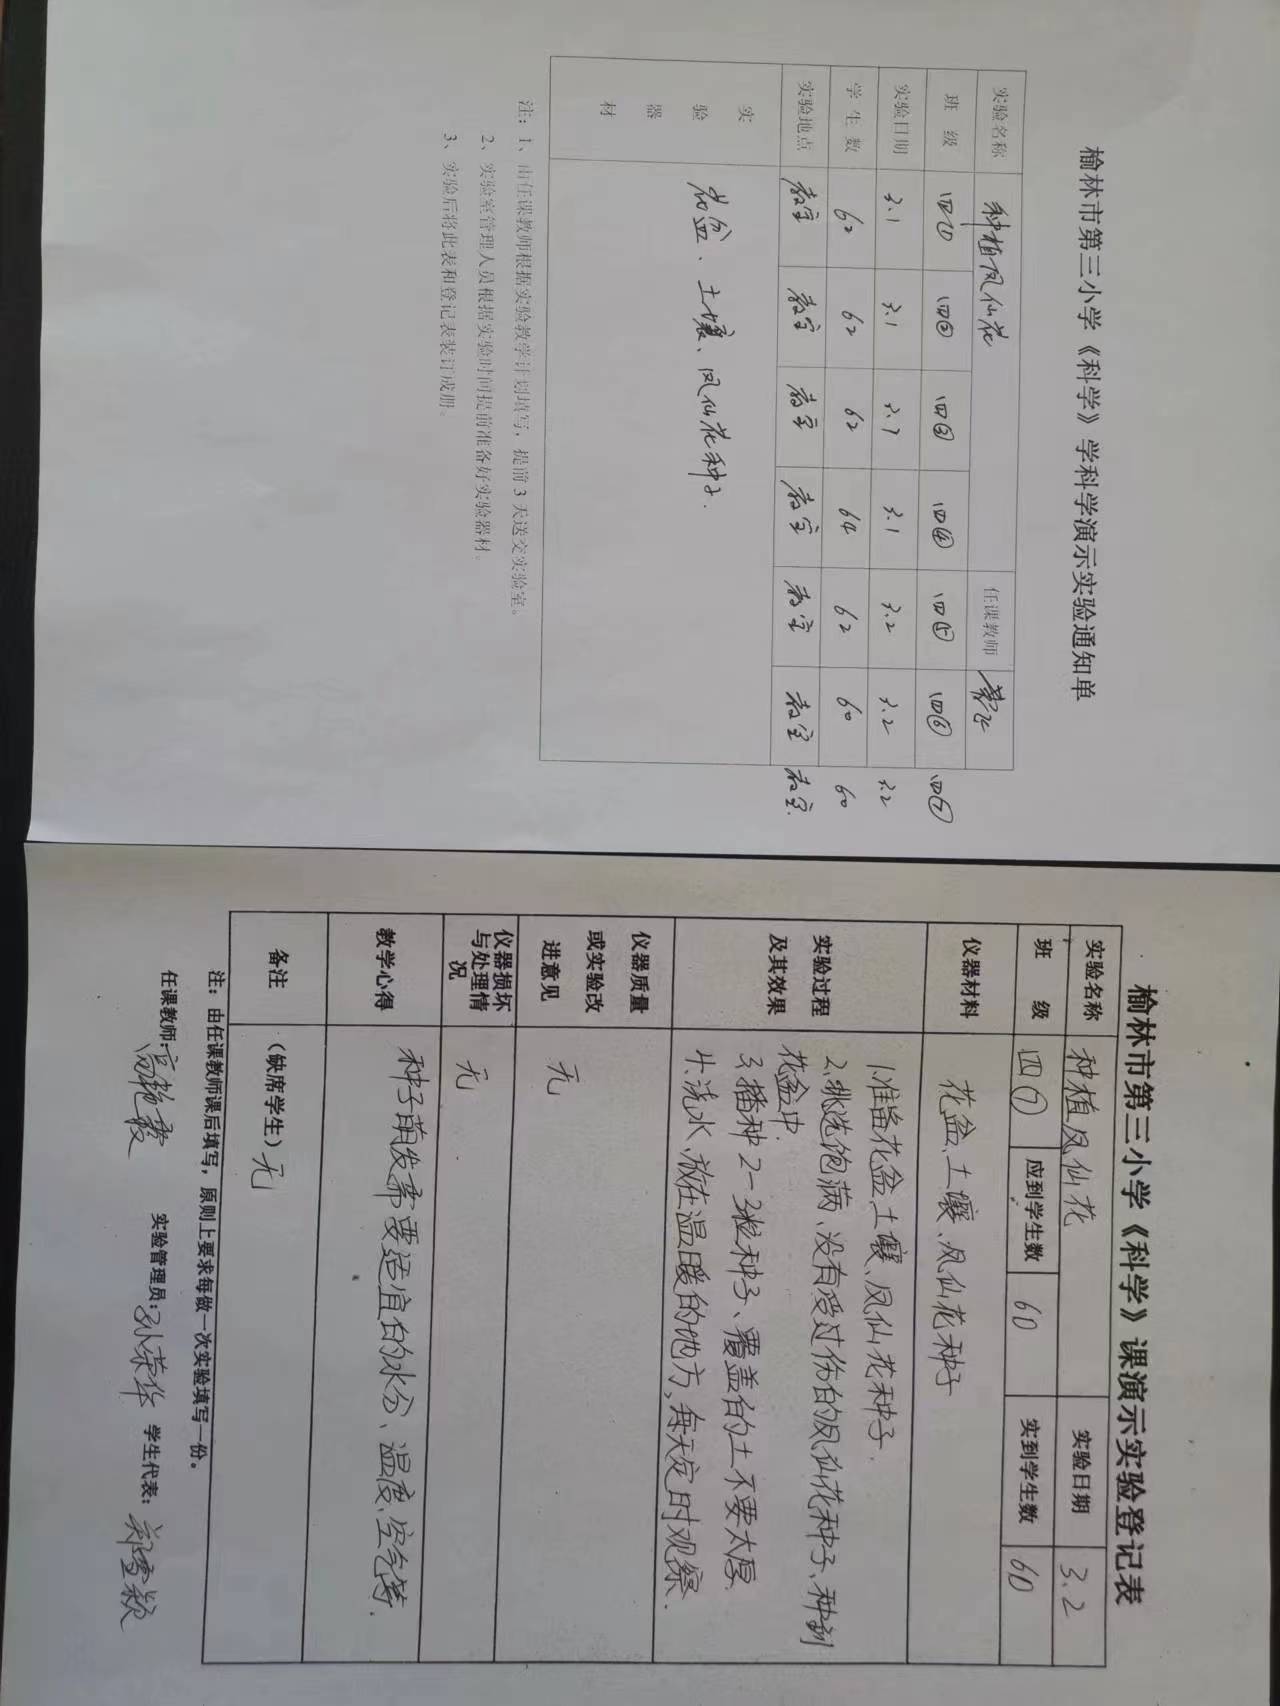 榆林市第三小学《科学》学科学演示实验通知单
实验名称 种植凤仙花 任课教师
班 级 四① 四② 四③ 四④ 四⑤ 四⑥ 四⑦
实验日期 3.1 3.1 3.1 3.2 3.2 3.2
学 生 数 62 62 62 64 62 60 60
实验地点 教室 教室 教室 教室 教室 教室 教室
实验器材 花盆、土壤、凤仙花种子.
注：1、由任课教师根据实验教学计划填写，提前 3 天送交实验室。
2、实验室管理人员根据实验时间提前准备好实验器材。
3、实验后将此表和登记表装订成册。
榆林市第三小学《科学》课演示实验登记表
实验名称 种植凤仙花 实验日期 3.2
班 级 四⑦ 应到学生数 60 实到学生数 60
仪器材料 花盆、土壤、凤仙花种子
实验过程及其效果
1.准备花盆、土壤、凤仙花种子.
2.挑选饱满、没有受过伤的凤仙花种子、种到
花盆中.
3.播种2-3粒种子、覆盖的土不要太厚.
4.浇水、放在温暖的地方,每天定时观察.
仪器质量或实验改进意见 无
仪器损坏与处理情况 无
教学心得 种子萌发需要适宜的水分、温度、空气等.
备注 （缺席学生）无
注：由任课教师课后填写，原则上要求每做一次实验填写一份。
任课教师: 实验管理员:孙荣华 学生代表: